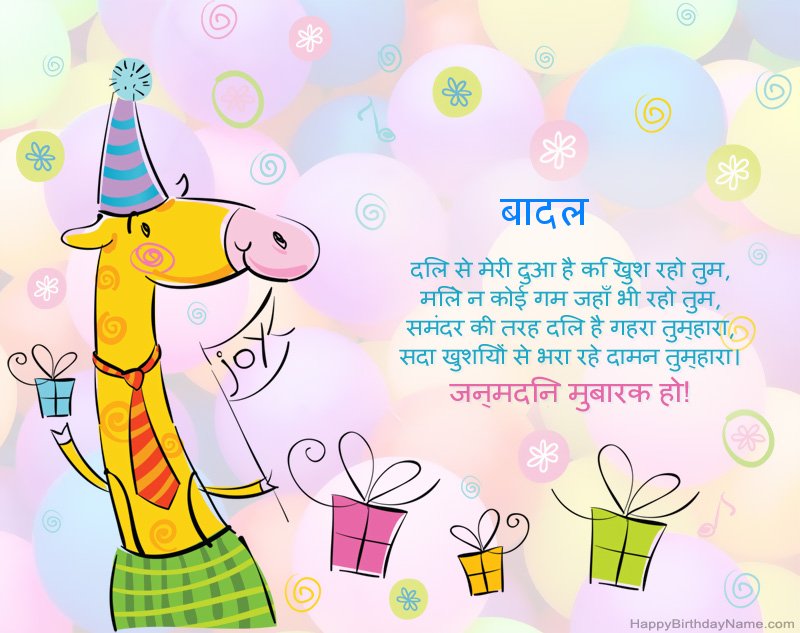 बादल
दिल से मेरी दुआ है कि खुश रहो तुम,
मिले न कोई गम जहाँ भी रहो तुम,
समंदर की तरह दिल है गहरा तुम्हारा,
सदा खुशियों से भरा रहे दामन तुम्हारा।
जन्मदिन मुबारक हो!
joy
HappyBirthdayName.com